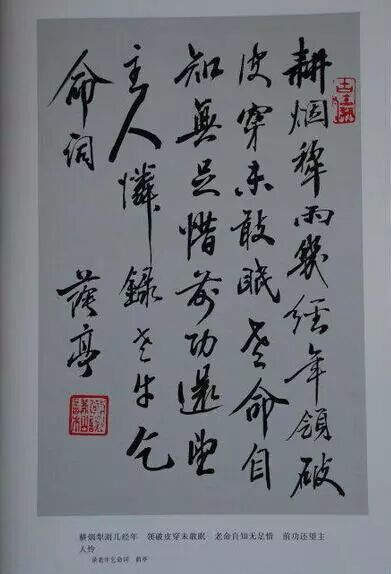 耕烟犂雨幾經年領破
皮穿未敢眠老命自
知無足惜前功還望
主人憐 錄老牛乞
命詞 蔭亭
耕烟犁雨几经年 领破皮穿未敢眠 老命自知无足惜 前功还望主
人怜
录老牛乞命词 荫亭